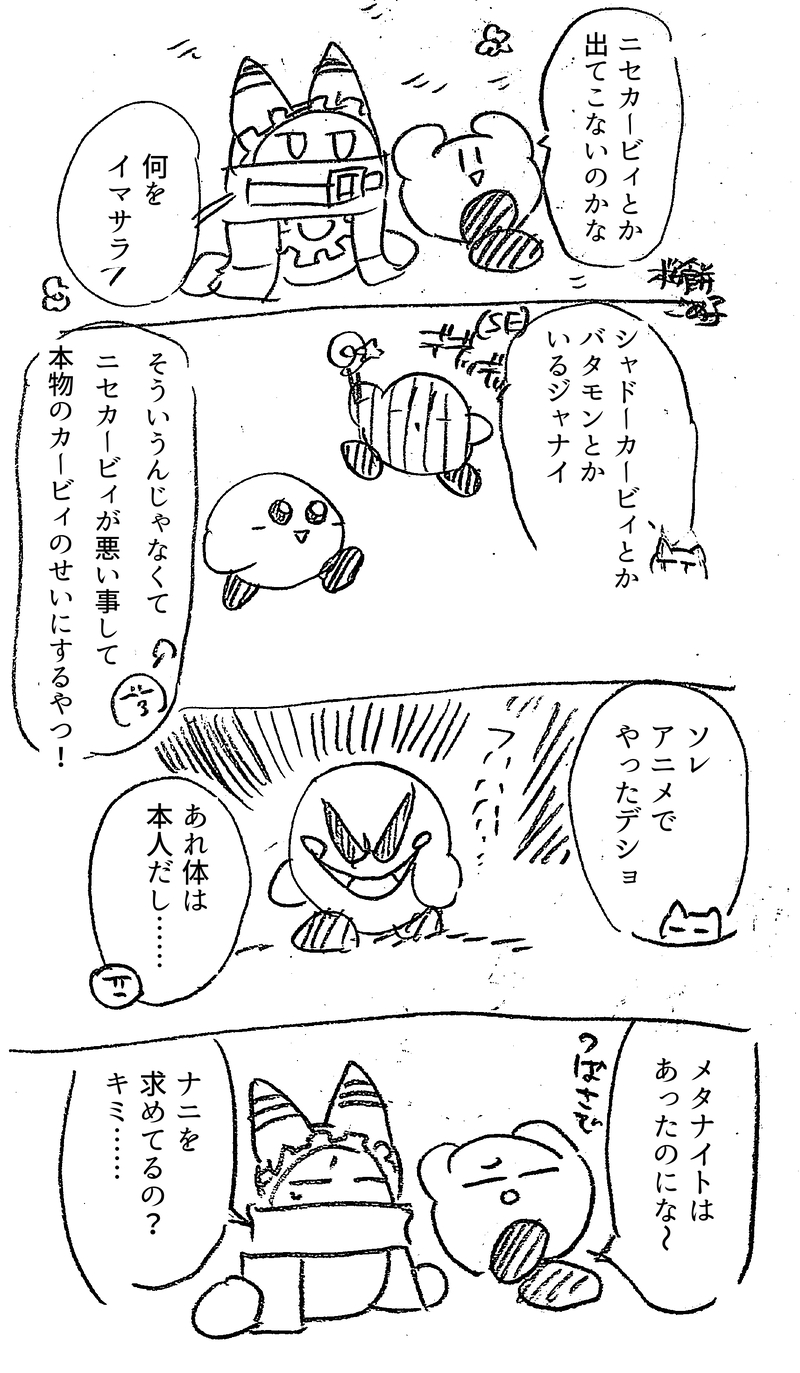 ニセカービィとか
出てこないのかな
何を
イマサラ
シャドーカービィとか
バタモンとか
いるジャナイ
(SE)
そういうんじゃなくて
ニセカービィが悪い事して
本物のカービィのせいにするやつ！
ソレ
アニメで
やったデショ
あれ体は
本人だし……
メタナイトは
あったのにな～
つばさで
ナニを
求めてるの？
キミ……